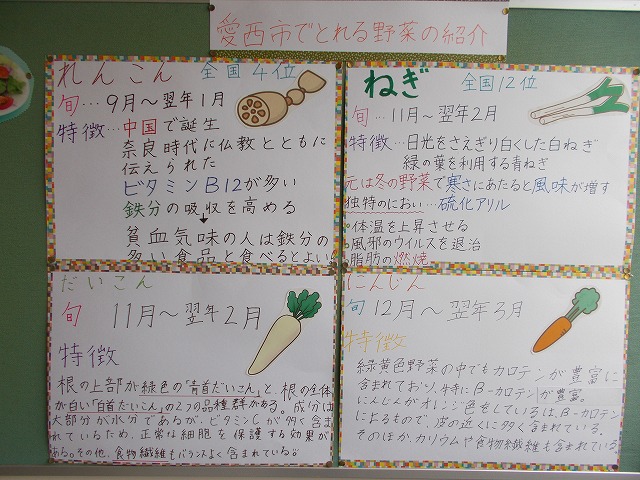 愛西市でとれる野菜の紹介
れんこん 全国4位
旬…9月～翌年1月
特徴…中国で誕生
奈良時代に仏教とともに
伝えられた
ビタミンB12が多い
鉄分の吸収を高める
↓
貧血気味の人は鉄分の
多い食品と食べるとよい
ねぎ 全国12位
旬…11月～翌年2月
特徴…日光をさえぎり白くした白ねぎ
緑の葉を利用する青ねぎ
元は冬の野菜で寒さにあたると風味が増す
独特のにおい…硫化アリル
・体温を上昇させる
・風邪のウイルスを退治
・脂肪の燃焼
だいこん
旬 11月～翌年2月
特徴
根の上部が緑色の「青首だいこん」と、根の全体
が白い「白首だいこん」の2つの品種群がある。成分は
大部分が水分であるが、ビタミンCが多く含ま
れているため、正常な細胞を保護する効果が
ある。その他、食物繊維もバランスよく含まれている。
にんじん
旬 12月～翌年3月
特徴
緑黄色野菜の中でもカロテンが豊富に
含まれており、特にβ-カロテンが豊富。
にんじんがオレンジ色をしているは、β-カロテン
によるもので、皮の近くに多く含まれている。
そのほか、カリウムや食物繊維も含まれている